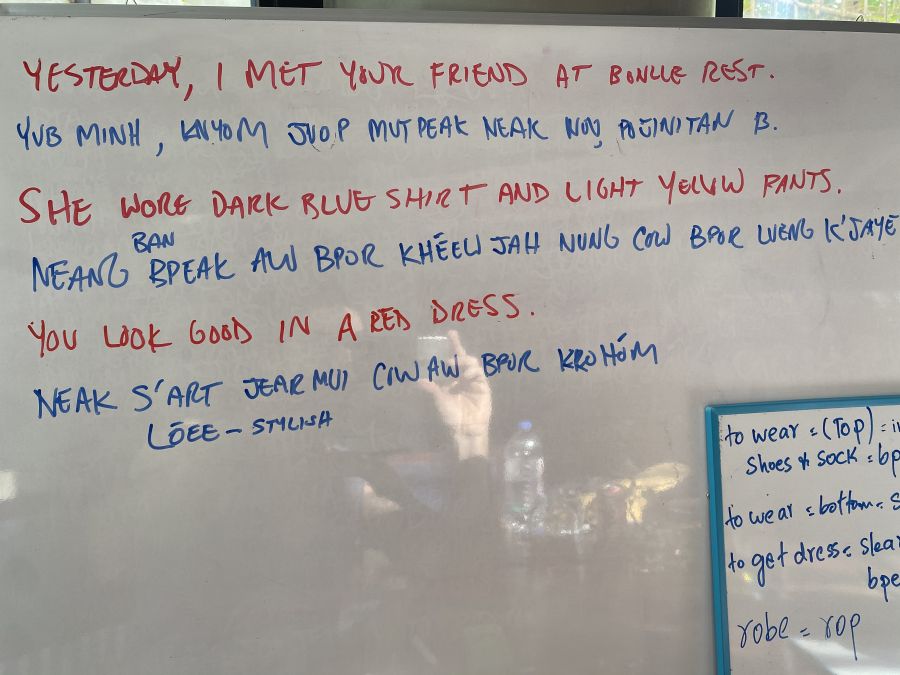 YESTERDAY, I MET YOUR FRIEND AT BONLLE REST.
YUB MINH, KNYOM JUOP MUTPEAK NEAK NOU POJINITAN B.
SHE WORE DARK BLUE SHIRT AND LIGHT YELLOW PANTS.
BAN
NEANG BPEAK AW BPOR KHÉEW JAH NUNG COW BPOR LUENG K'JAYÉ
YOU LOOK GOOD IN A RED DRESS.
NEAK S'ART JEARMUI COWAW BPOR KROHÓM
LÓEE - STYLISH
to wear = (Top) = i
Shoes & SOCK = bp
to wear = bottom = S
to get dress = slea
bpe
robe = rop